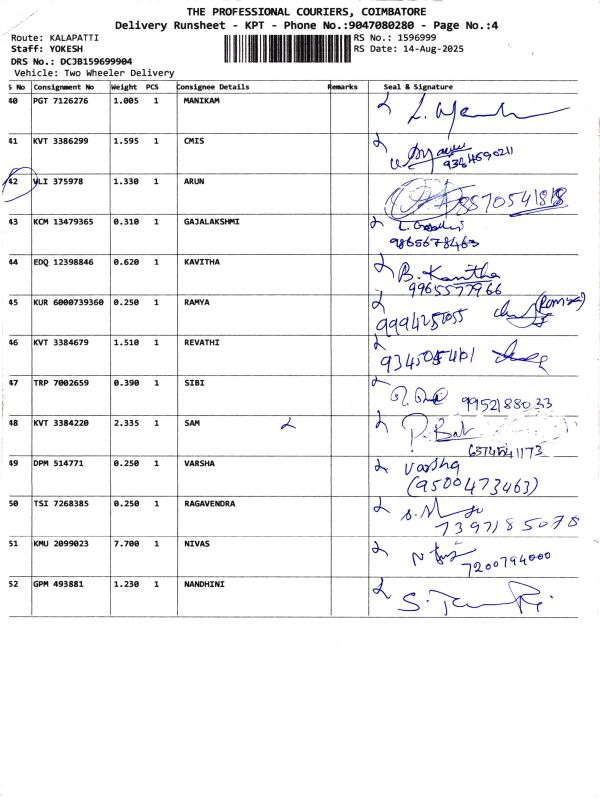 THE PROFESSIONAL COURIERS, COIMBATORE
Delivery Runsheet - KPT - Phone No.:9047080280 - Page No.:4
Route: KALAPATTI RS No.: 1596999
Staff: YOKESH RS Date: 14-Aug-2025
DRS No.: DCJB159699904
Vehicle: Two Wheeler Delivery
S No Consignment No Weight PCS Consignee Details Remarks Seal & Signature
40 PGT 7126276 1.005 1 MANIKAM
41 KVT 3386299 1.595 1 CMIS
42 VLI 375978 1.330 1 ARUN
43 KCM 13479365 0.310 1 GAJALAKSHMI
9865678463
44 EDQ 12398846 0.620 1 KAVITHA B. Kavitha
9965577966
45 KUR 6000739360 0.250 1 RAMYA
46 KVT 3384679 1.510 1 REVATHI
47 TRP 7002659 0.390 1 SIBI 9952188033
48 KVT 3384220 2.335 1 SAM
49 DPM 514771 0.250 1 VARSHA Varsha
(9500473463)
50 TSI 7268385 0.250 1 RAGAVENDRA
7397185078
51 KMU 2099023 7.700 1 NIVAS
7200794000
52 GPM 493881 1.230 1 NANDHINI